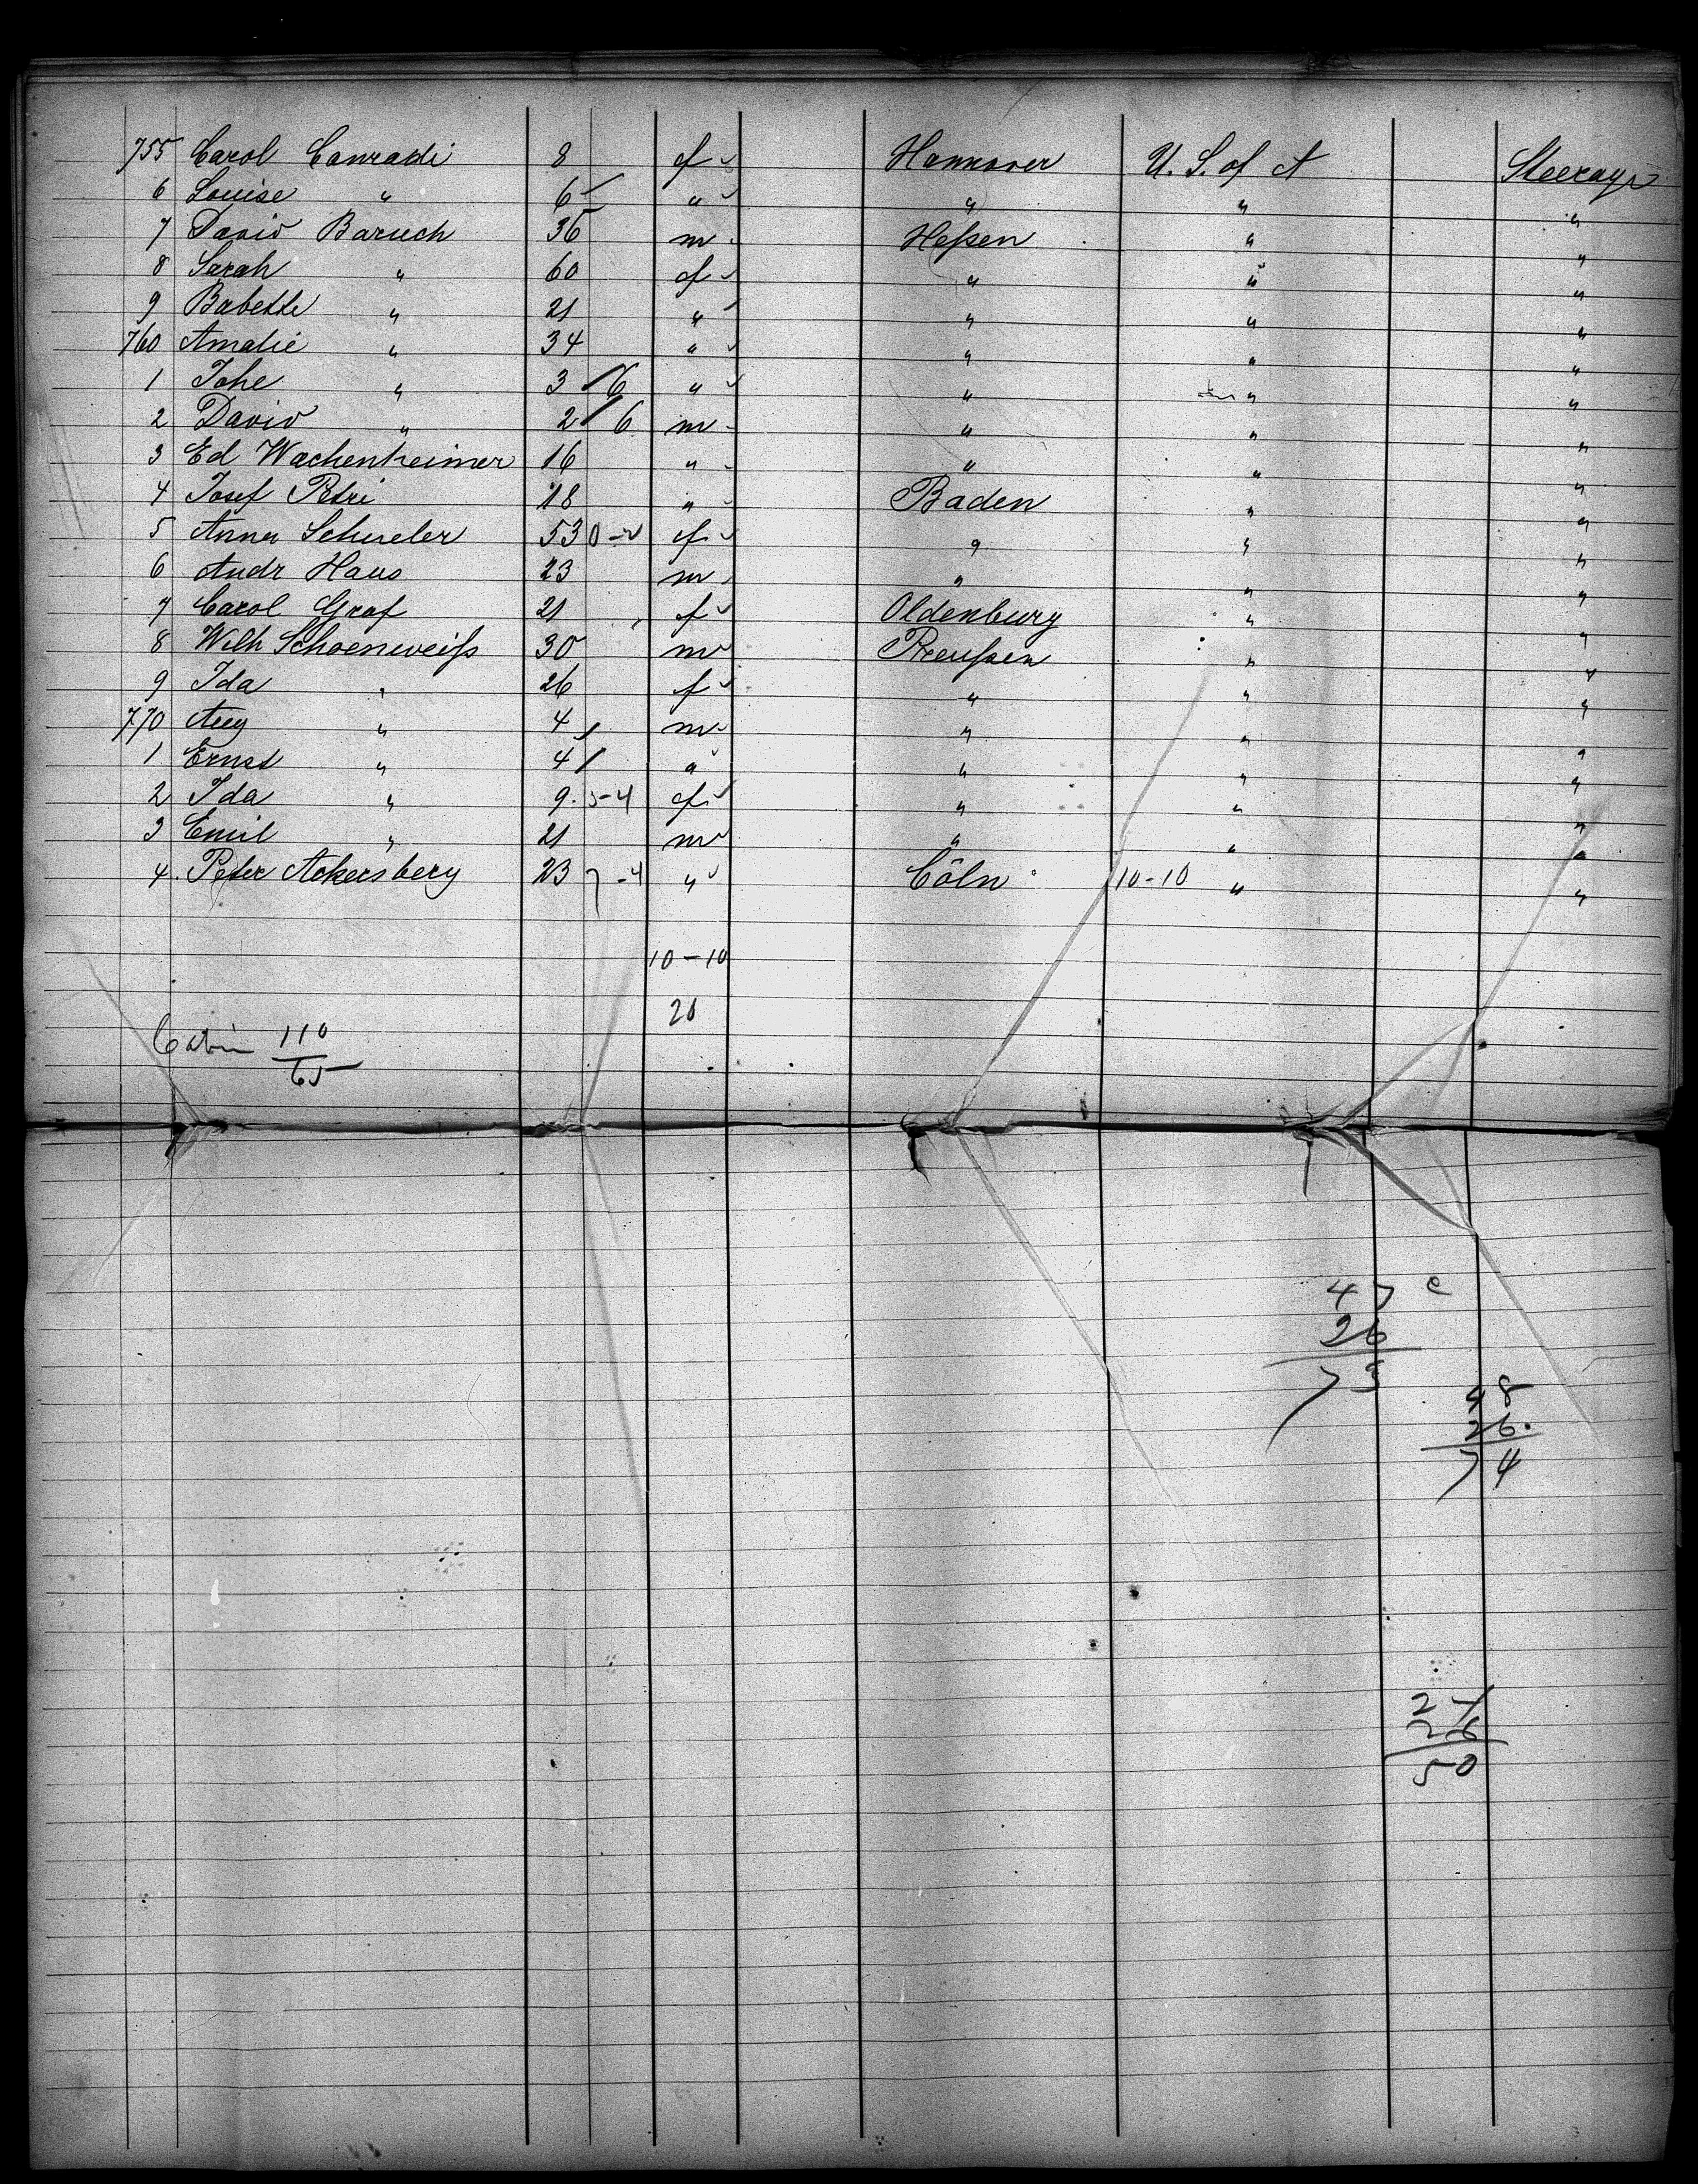 755 Carol Conradi 8 f Hannover U. S. of A Steerage
6 Louise " 6 " " " "
7 David Baruch 36 m Heſsen " "
8 Sarah " 60 f " " "
9 Babette " 21 " " " "
760 Amalie " 34 " " " "
1 " 3 / 6 " " " "
2 David " 2 / 6 m " " "
3 Ed Wachenheimer 16 " " " "
4 Josef Petri 18 " Baden " "
5 Anna 53 f " " "
6 Andr Haus 23 m " " "
7 Carol Graf 21 f Oldenburg " "
8 Wilh Schoenweiſs 30 m Preuſsen " "
9 Ida " 26 f " " "
770 Aug " 4 m " " "
1 Ernst " 4 / " " " "
2 Ida " 9 5-4 f " " "
3 Emil " 21 m " " "
4 Peter Ackersberg 23 7-4 " Cöln 10-10 " "
10-10
20
Cabin 110
65
47 e
26
73
48
26
74
24
26
50